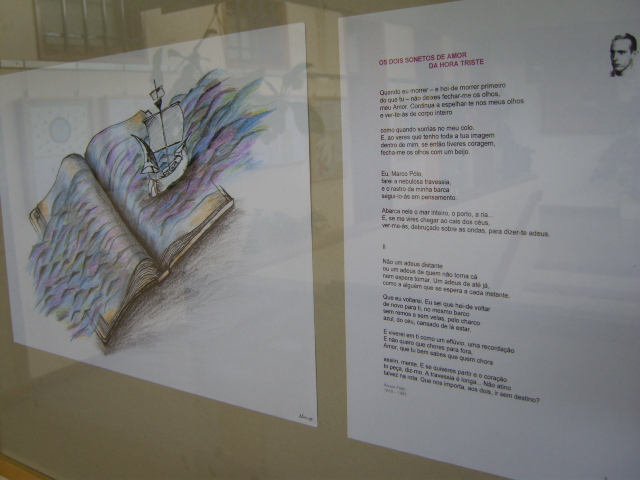 OS DOIS SONETOS DE AMOR
DA HORA TRISTE
Quando eu morrer – e hei-de morrer primeiro
do que tu – não deixes fechar-me os olhos,
meu Amor. Continua a espelhar-te nos meus olhos
e ver-te-ás de corpo inteiro
como quando sorrias no meu colo.
E, ao veres que tenho toda a tua imagem
dentro de mim, se então tiveres coragem,
fecha-me os olhos com um beijo.
Eu, Marco Pólo,
farei a nebulosa travessia,
e o rastro da minha barca
segui-lo-ás em pensamento.
Abarca nele o mar inteiro, o porto, a ria...
E, se me vires chegar ao cais dos céus,
ver-me-ás, debruçado sobre as ondas, para dizer-te adeus.
II
Não um adeus distante
ou um adeus de quem não torna cá
nem espera tornar. Um adeus de até já,
como a alguém que se espera a cada instante.
Que eu voltarei. Eu sei que hei-de voltar
de novo para ti, no mesmo barco
sem remos e sem velas, pelo charco
azul, do céu, cansado de lá estar.
E viverei em ti como um eflúvio, uma recordação
E não quero que chores para fora,
Amor, que tu bem sabes que quem chora
assim, mente. E se quiseres partir e o coração
to peça, diz-mo. A travessia é longa... Não atino
talvez na rota. Que nos importa, aos dois, ir sem destino?